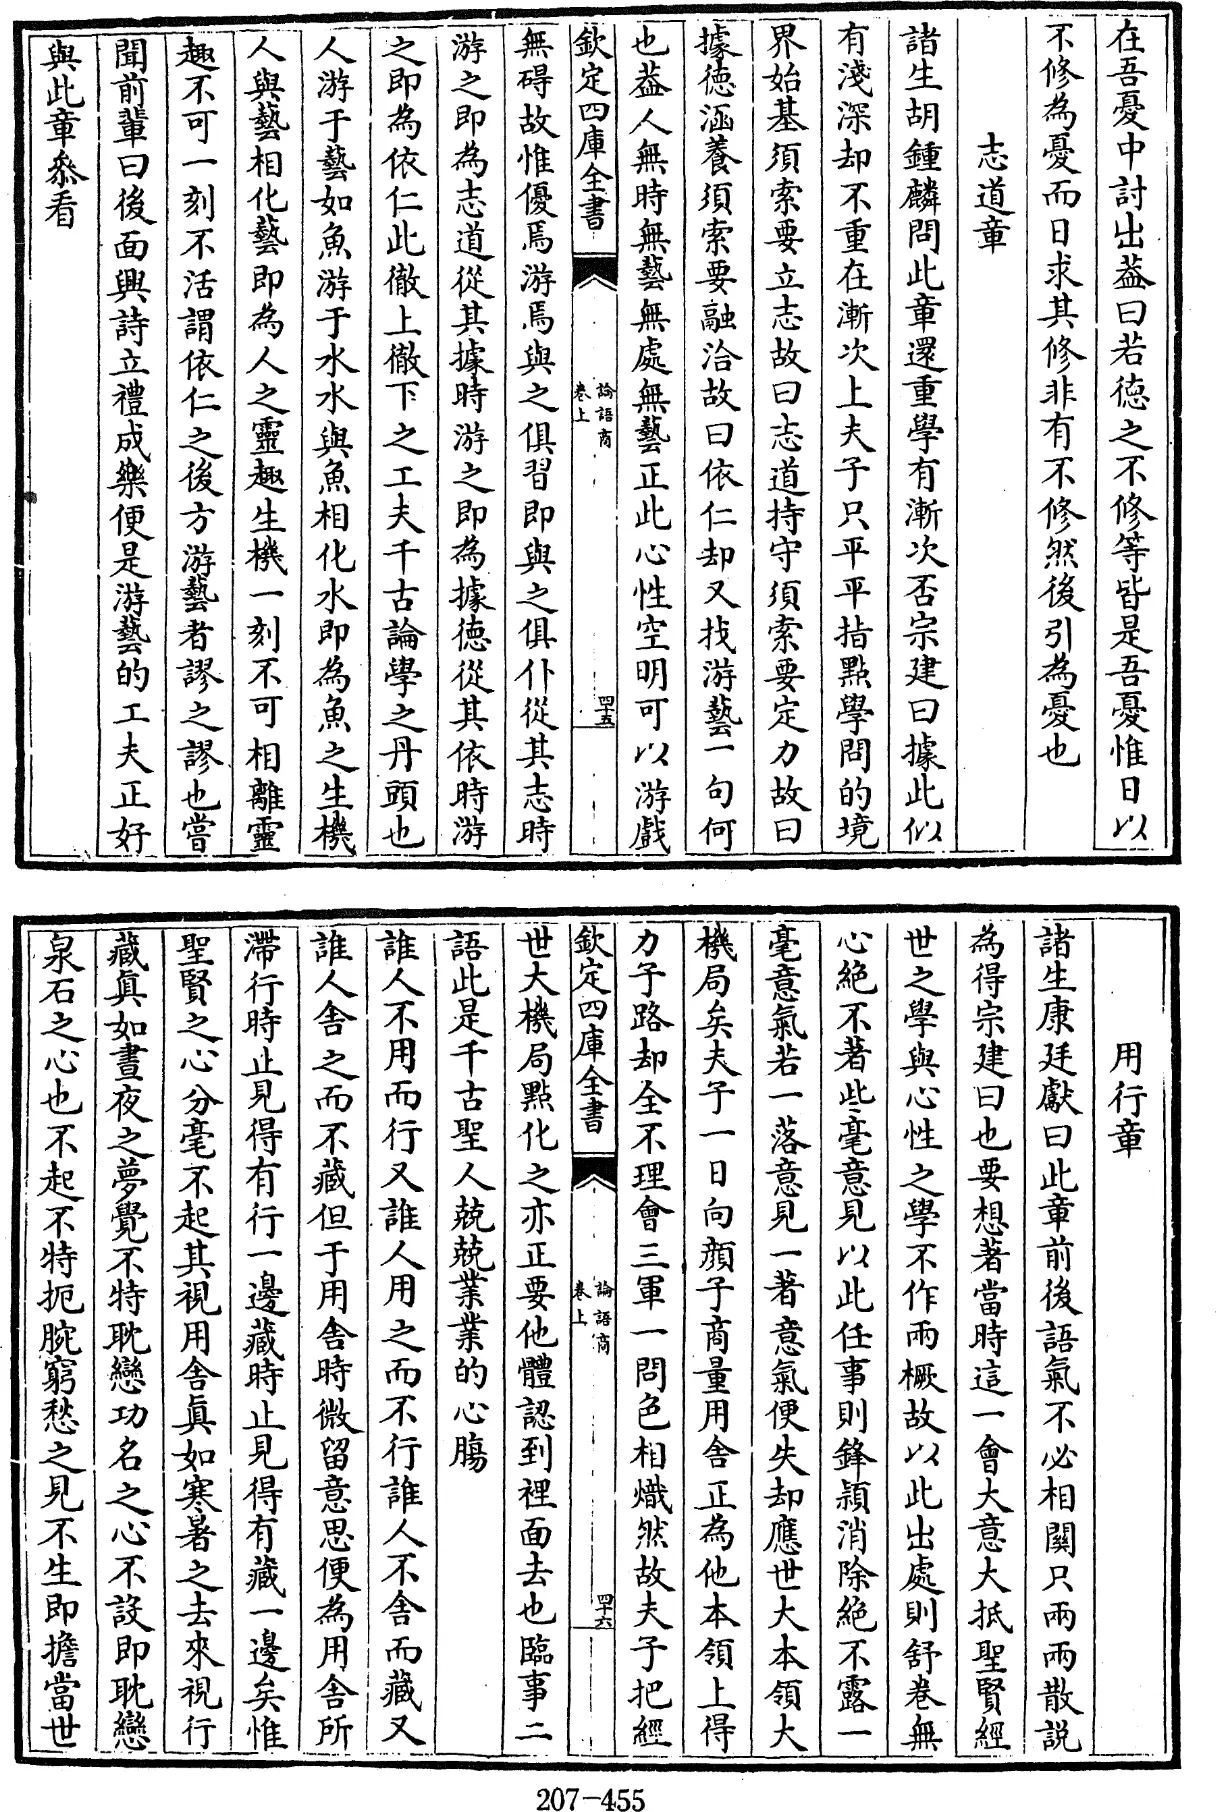 在吾憂中討出葢曰若徳之不修等皆是吾憂惟日以
不修為憂而日求其修非有不修然後引為憂也
志道章
諸生胡鍾麟問此章還重學有漸次否宗建曰據此似
有淺深却不重在漸次上夫子只平平指㸃學問的境
界始基須索要立志故曰志道持守須索要定力故曰
據徳涵養須索要融洽故曰依仁却又找游藝一句何
也葢人無時無藝無處無藝正此心性空明可以游戲
欽定四庫全書
論語商
卷上
四十五
無碍故惟優焉游焉與之俱習即與之俱仆從其志時
游之即為志道從其據時游之即為據徳從其依時游
之即為依仁此徹上徹下之工夫千古論學之丹頭也
人游于藝如魚游于水水與魚相化水即為魚之生機
人與藝相化藝即為人之靈趣生機一刻不可相離靈
趣不可一刻不活謂依仁之後方游藝者謬之謬也嘗
聞前輩曰後面興詩立禮成樂便是游藝的工夫正好
與此章叅看
用行章
諸生康廷獻曰此章前後語氣不必相闗只兩兩散説
為得宗建曰也要想著當時這一會大意大抵聖賢經
世之學與心性之學不作兩橛故以此出處則舒卷無
心絶不著些毫意見以此任事則鋒頴消除絶不露一
毫意氣若一落意見一著意氣便失却應世大本領大
機局矣夫子一日向顔子商量用舍正為他本領上得
力子路却全不理會三軍一問色相熾然故夫子把經
欽定四庫全書
論語商
卷上
四十六
世大機局㸃化之亦正要他體認到裡面去也臨事二
語此是千古聖人兢兢業業的心腸
誰人不用而行又誰人用之而不行誰人不舍而藏又
誰人舍之而不藏但于用舍時微留意思便為用舍所
滯行時止見得有行一邊藏時止見得有藏一邊矣惟
聖賢之心分毫不起其視用舍眞如寒暑之去來視行
藏眞如晝夜之夢覺不特耽戀功名之心不設即耽戀
泉石之心也不起不特扼腕窮愁之見不生即擔當世
207-455